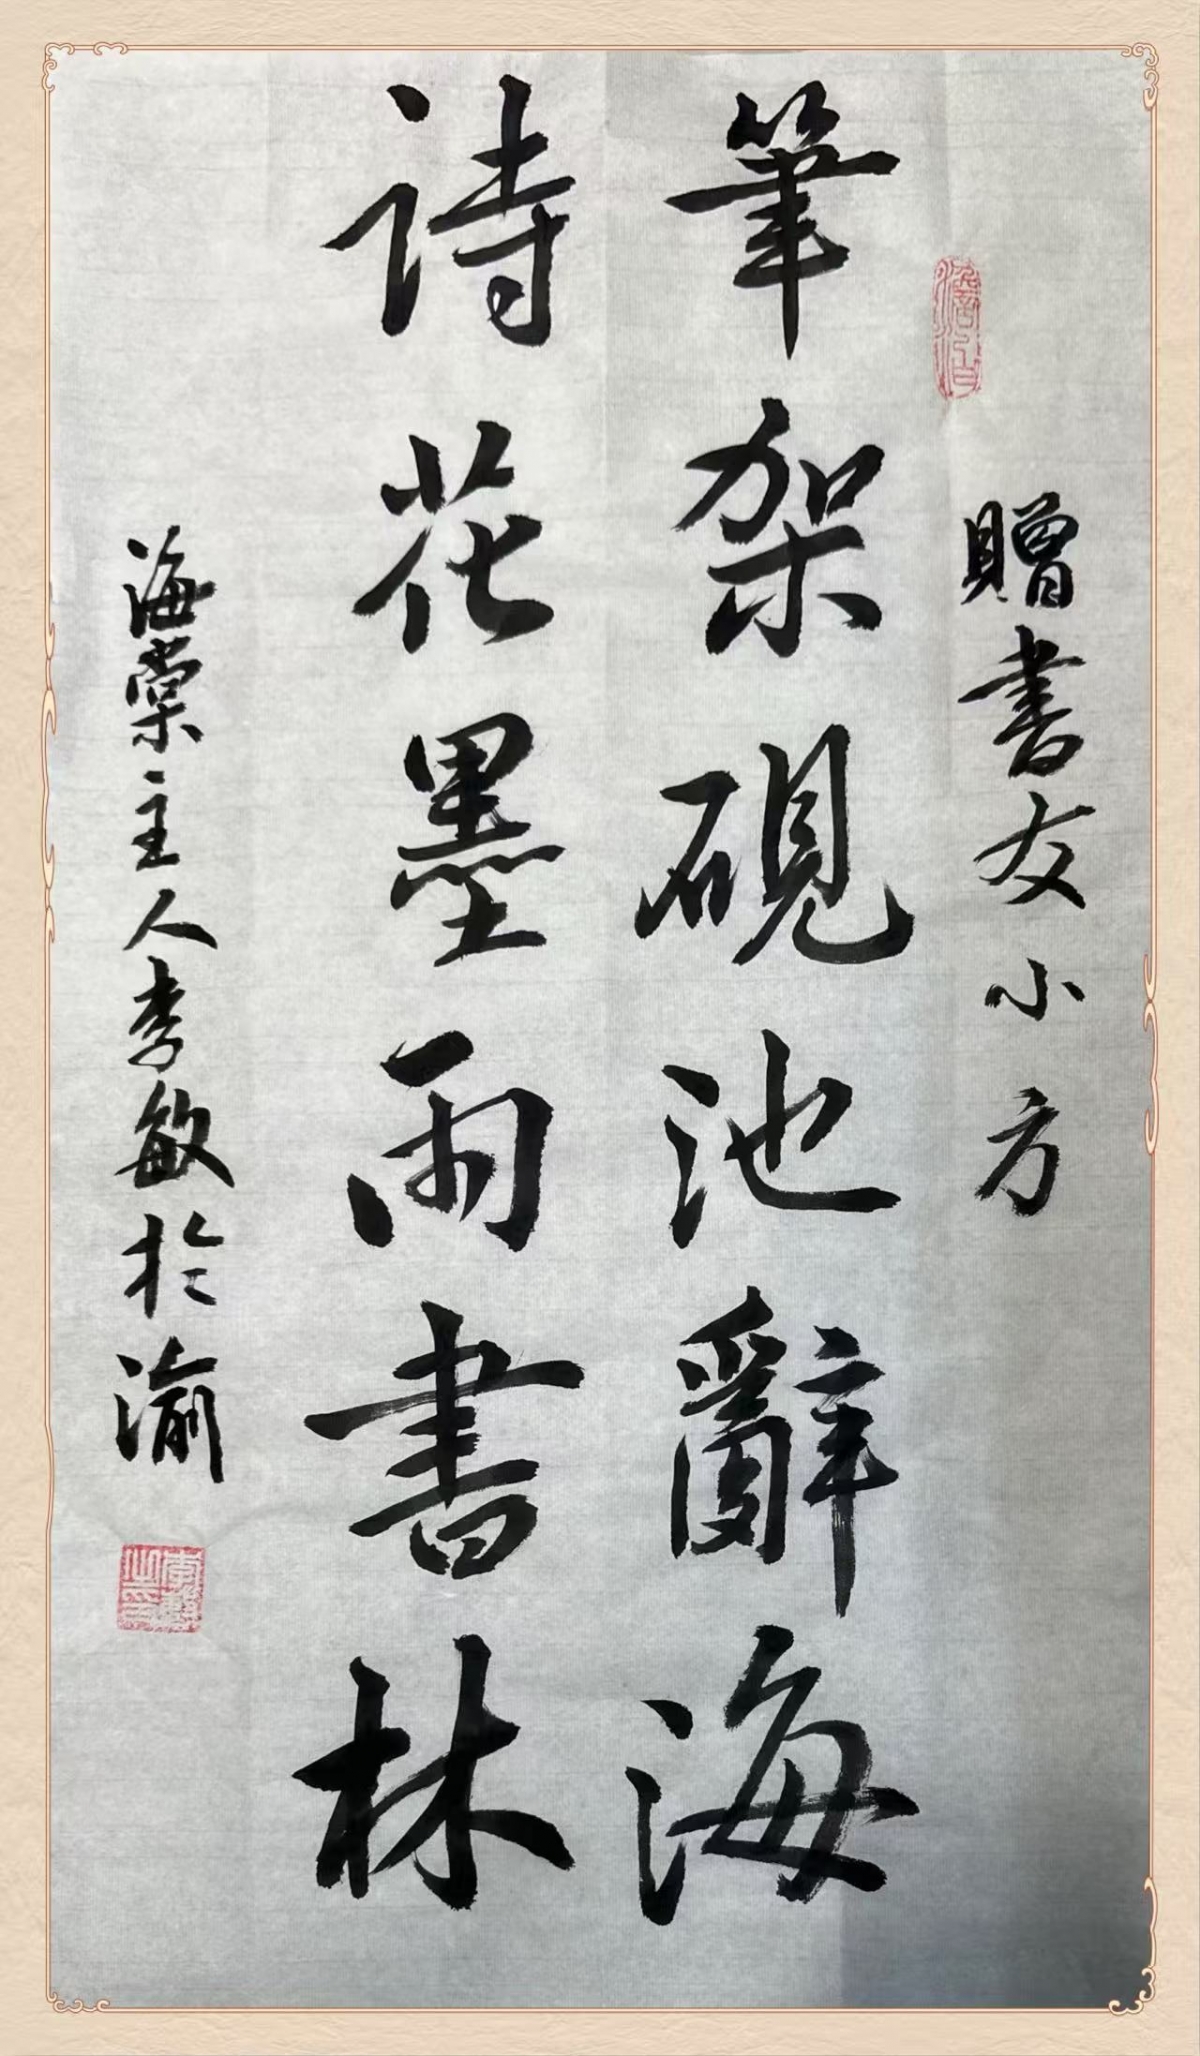 贈書友小方
筆架硯池辭海
詩花墨雨書林
海棠主人李敏於渝